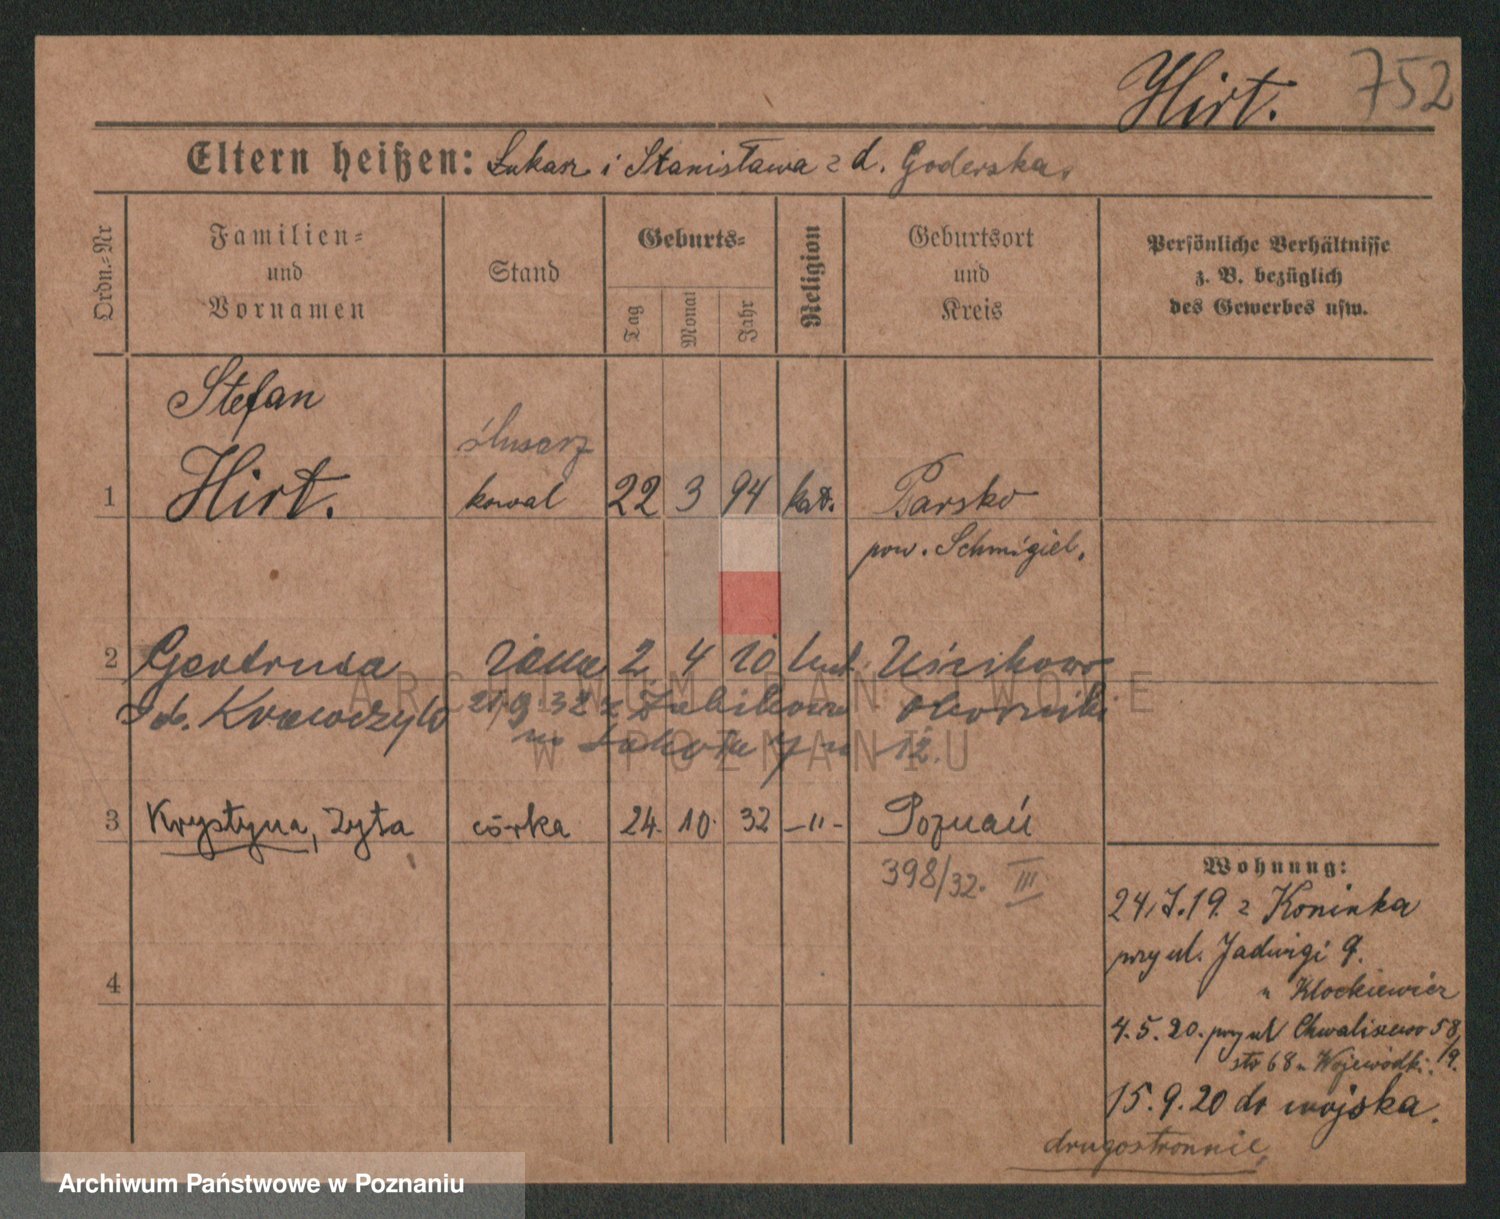 Hirt. 752
Eltern heißen: Łukasz i Stanisława z d. Goderska.
Ordn.-Nr
Familien-
und
Vornamen
Stand
Geburts-
Tag
Monat
Jahr
Religion
Geburtsort
und
Kreis
Persönliche Verhältnisse
z. B. bezüglich
des Gewerbes usw.
Stefan
ślusarz
1 Hirt. kowal 22 3 94 kat. Barsko
pow. Schmigiel.
2 Gertruda żona 2 4 10 Uścikowo
21.9.32 z Żabikowa Oborniki
12.
3 Krystyna, Zyta córka 24. 10. 32 -"- Poznań
398/32. III
4
Wohnung:
24.7.19. z Koninka
przy ul. Jadwigi 9.
u Klockiewicz
4.5.20. przy ul Chwaliszewo 58/9.
str 68 u Wojewódki.
15.9.20 do wojska.
drugostronnie
ARCHIWUM PAŃSTWOWE
W POZNANIU
Archiwum Państwowe w Poznaniu